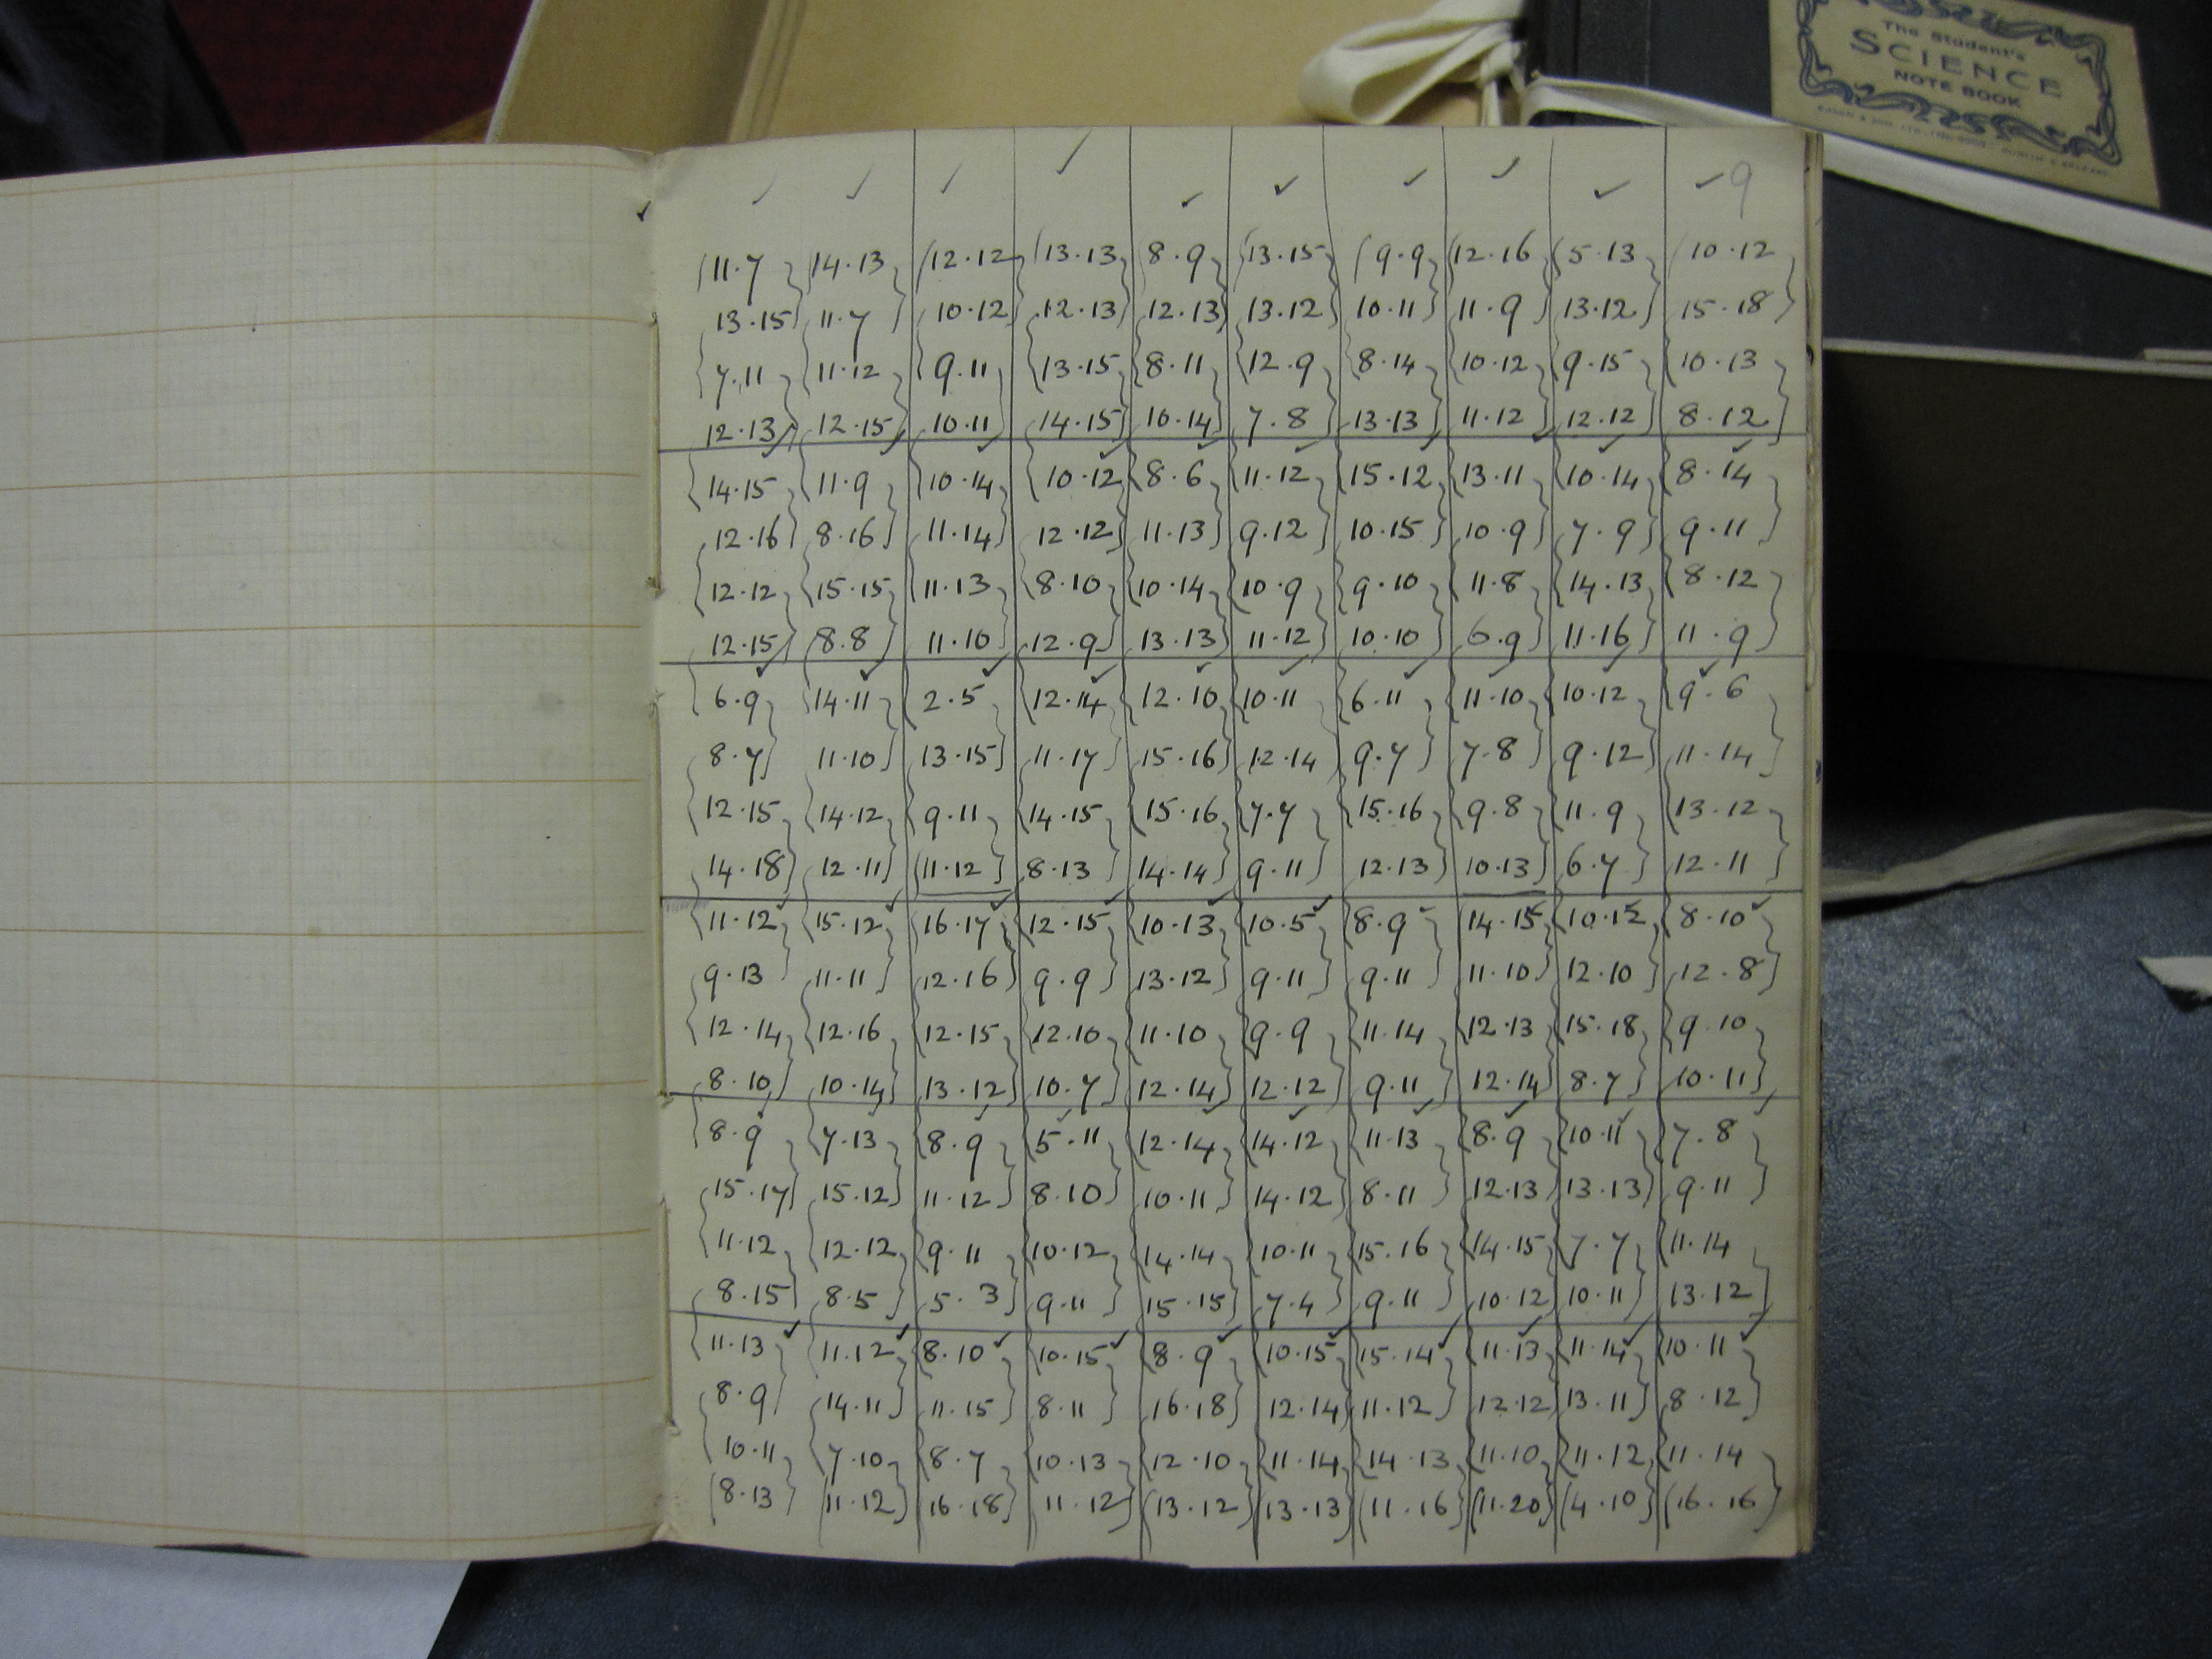 The Student's
SCIENCE
NOTE BOOK
9
11.7 14.13 12.12 13.13 8.9 13.15 9.9 12.16 5.13 10.12
13.15 11.7 10.12 12.13 12.13 13.12 10.11 11.9 13.12 15.18
7.11 11.12 9.11 13.15 8.11 12.9 8.14 10.12 9.15 10.13
12.13 12.15 10.11 14.15 10.14 7.8 13.13 11.12 12.12 8.12
14.15 11.9 10.14 10.12 8.6 11.12 15.12 13.11 10.14 8.14
12.16 8.16 11.14 12.12 11.13 9.12 10.15 10.9 7.9 9.11
12.12 15.15 11.13 8.10 10.14 10.9 9.10 11.8 14.13 8.12
12.15 8.8 11.10 12.9 13.13 11.12 10.10 6.9 11.16 11.9
6.9 14.11 2.5 12.14 12.10 10.11 6.11 11.10 10.12 9.6
8.7 11.10 13.15 11.17 15.16 12.14 9.7 7.8 9.12 11.14
12.15 14.12 9.11 14.15 15.16 7.7 15.16 9.8 11.9 13.12
14.18 12.11 11.12 8.13 14.14 9.11 12.13 10.13 6.7 12.11
11.12 15.12 16.17 12.15 10.13 10.5 8.9 14.15 10.12 8.10
9.13 11.11 12.16 9.9 13.12 9.11 9.11 11.10 12.10 12.8
12.14 12.16 12.15 12.10 11.10 9.9 11.14 12.13 15.18 9.10
8.10 10.14 13.12 10.7 12.14 12.12 9.11 12.14 8.7 10.11
8.9 7.13 8.9 5.11 12.14 14.12 11.13 8.9 10.11 7.8
15.17 15.12 11.12 8.10 10.11 14.12 8.11 12.13 13.13 9.11
11.12 12.12 9.11 10.12 14.14 10.11 15.16 14.15 7.7 11.14
8.15 8.5 5.3 9.11 15.15 7.4 9.11 10.12 10.11 13.12
11.13 11.12 8.10 10.15 8.9 10.15 15.14 11.13 11.14 10.11
8.9 14.11 11.15 8.11 16.18 12.14 11.12 12.12 13.11 8.12
10.11 7.10 8.7 10.13 12.10 11.14 14.13 11.10 11.12 11.14
8.13 11.12 16.18 11.12 13.12 13.13 11.16 11.20 4.10 16.16